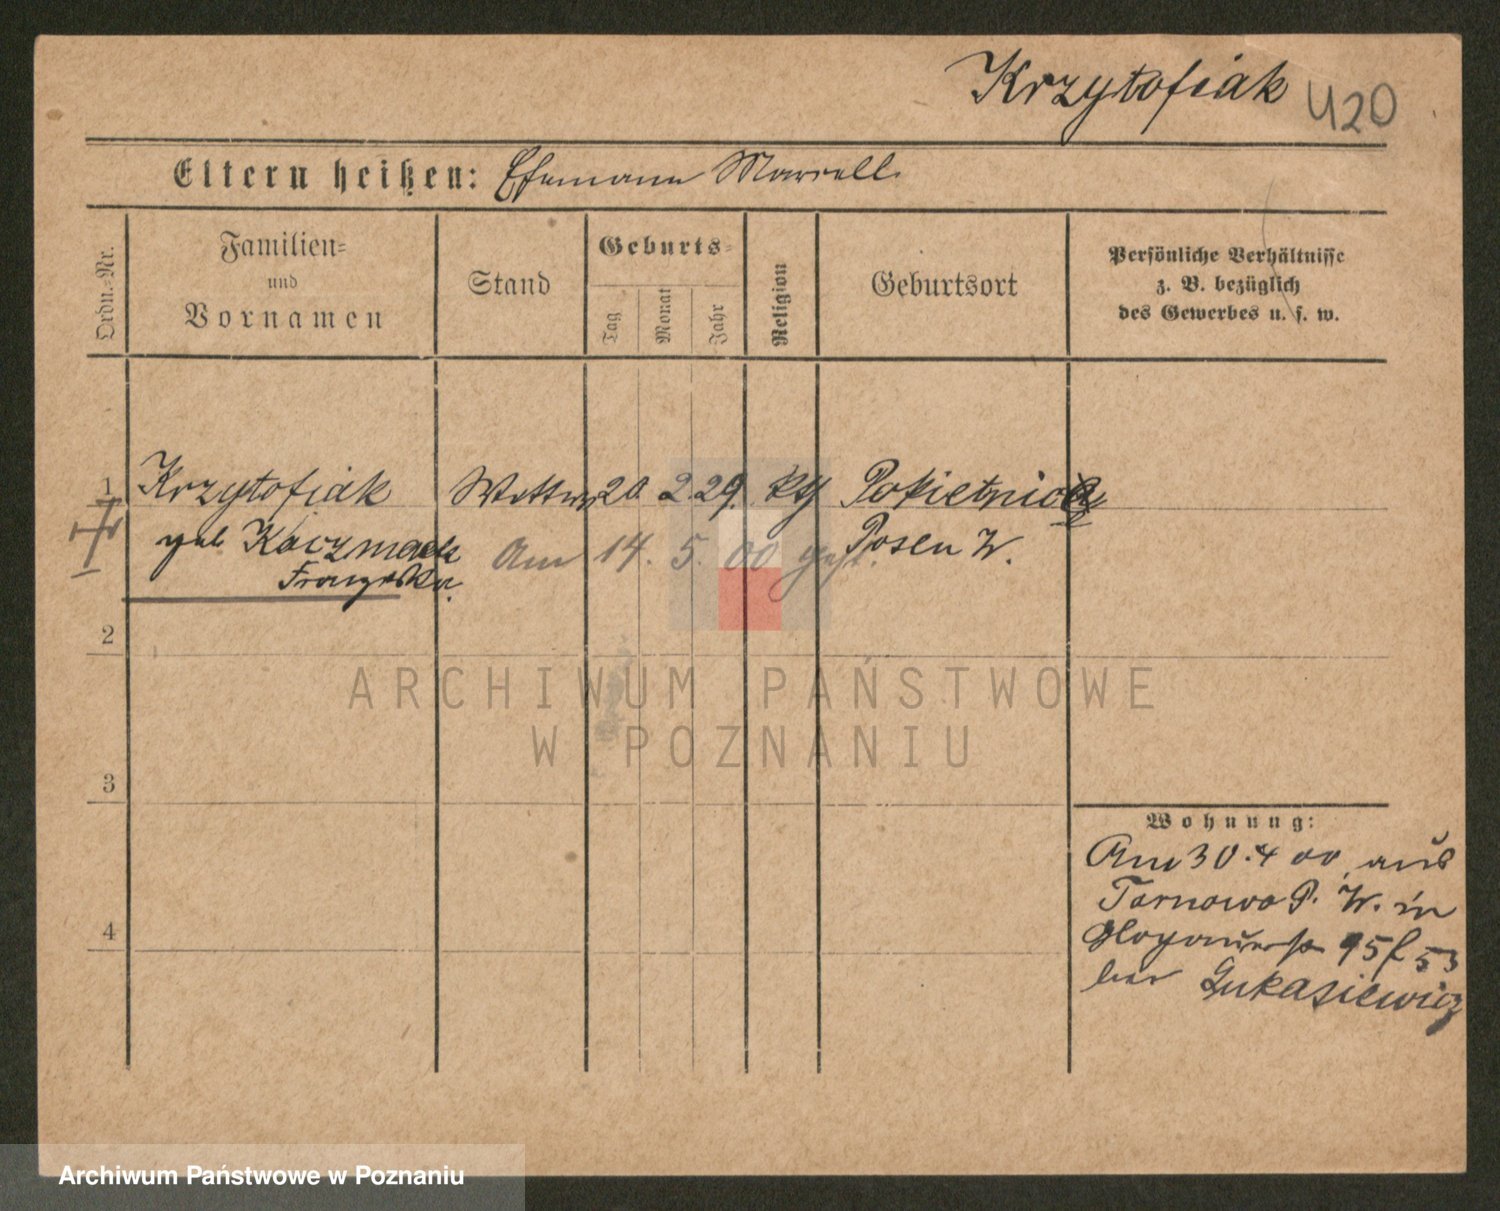 Krzytofiak 420
Eltern heißen: Ehemann Marcell
Ordn.=Nr.
Familien=
und
Vornamen
Stand
Geburts=
Tag
Monat
Jahr
Religion
Geburtsort
Persönliche Verhältnisse
z. B. bezüglich
des Gewerbes u. s. w.
1 Krzytofiak Wittwe 20. 2. 29. Pokietnica
geb Kaczmarek Posen W.
Franziska
Am 14. 5. 00 gest.
2
3
4
Wohnung:
Am 30.4 00, aus
Tarnowo P. W. in
Glogauerstr 95 f 53
bei Lukasiewicz
ARCHIWUM PAŃSTWOWE
W POZNANIU
Archiwum Państwowe w Poznaniu